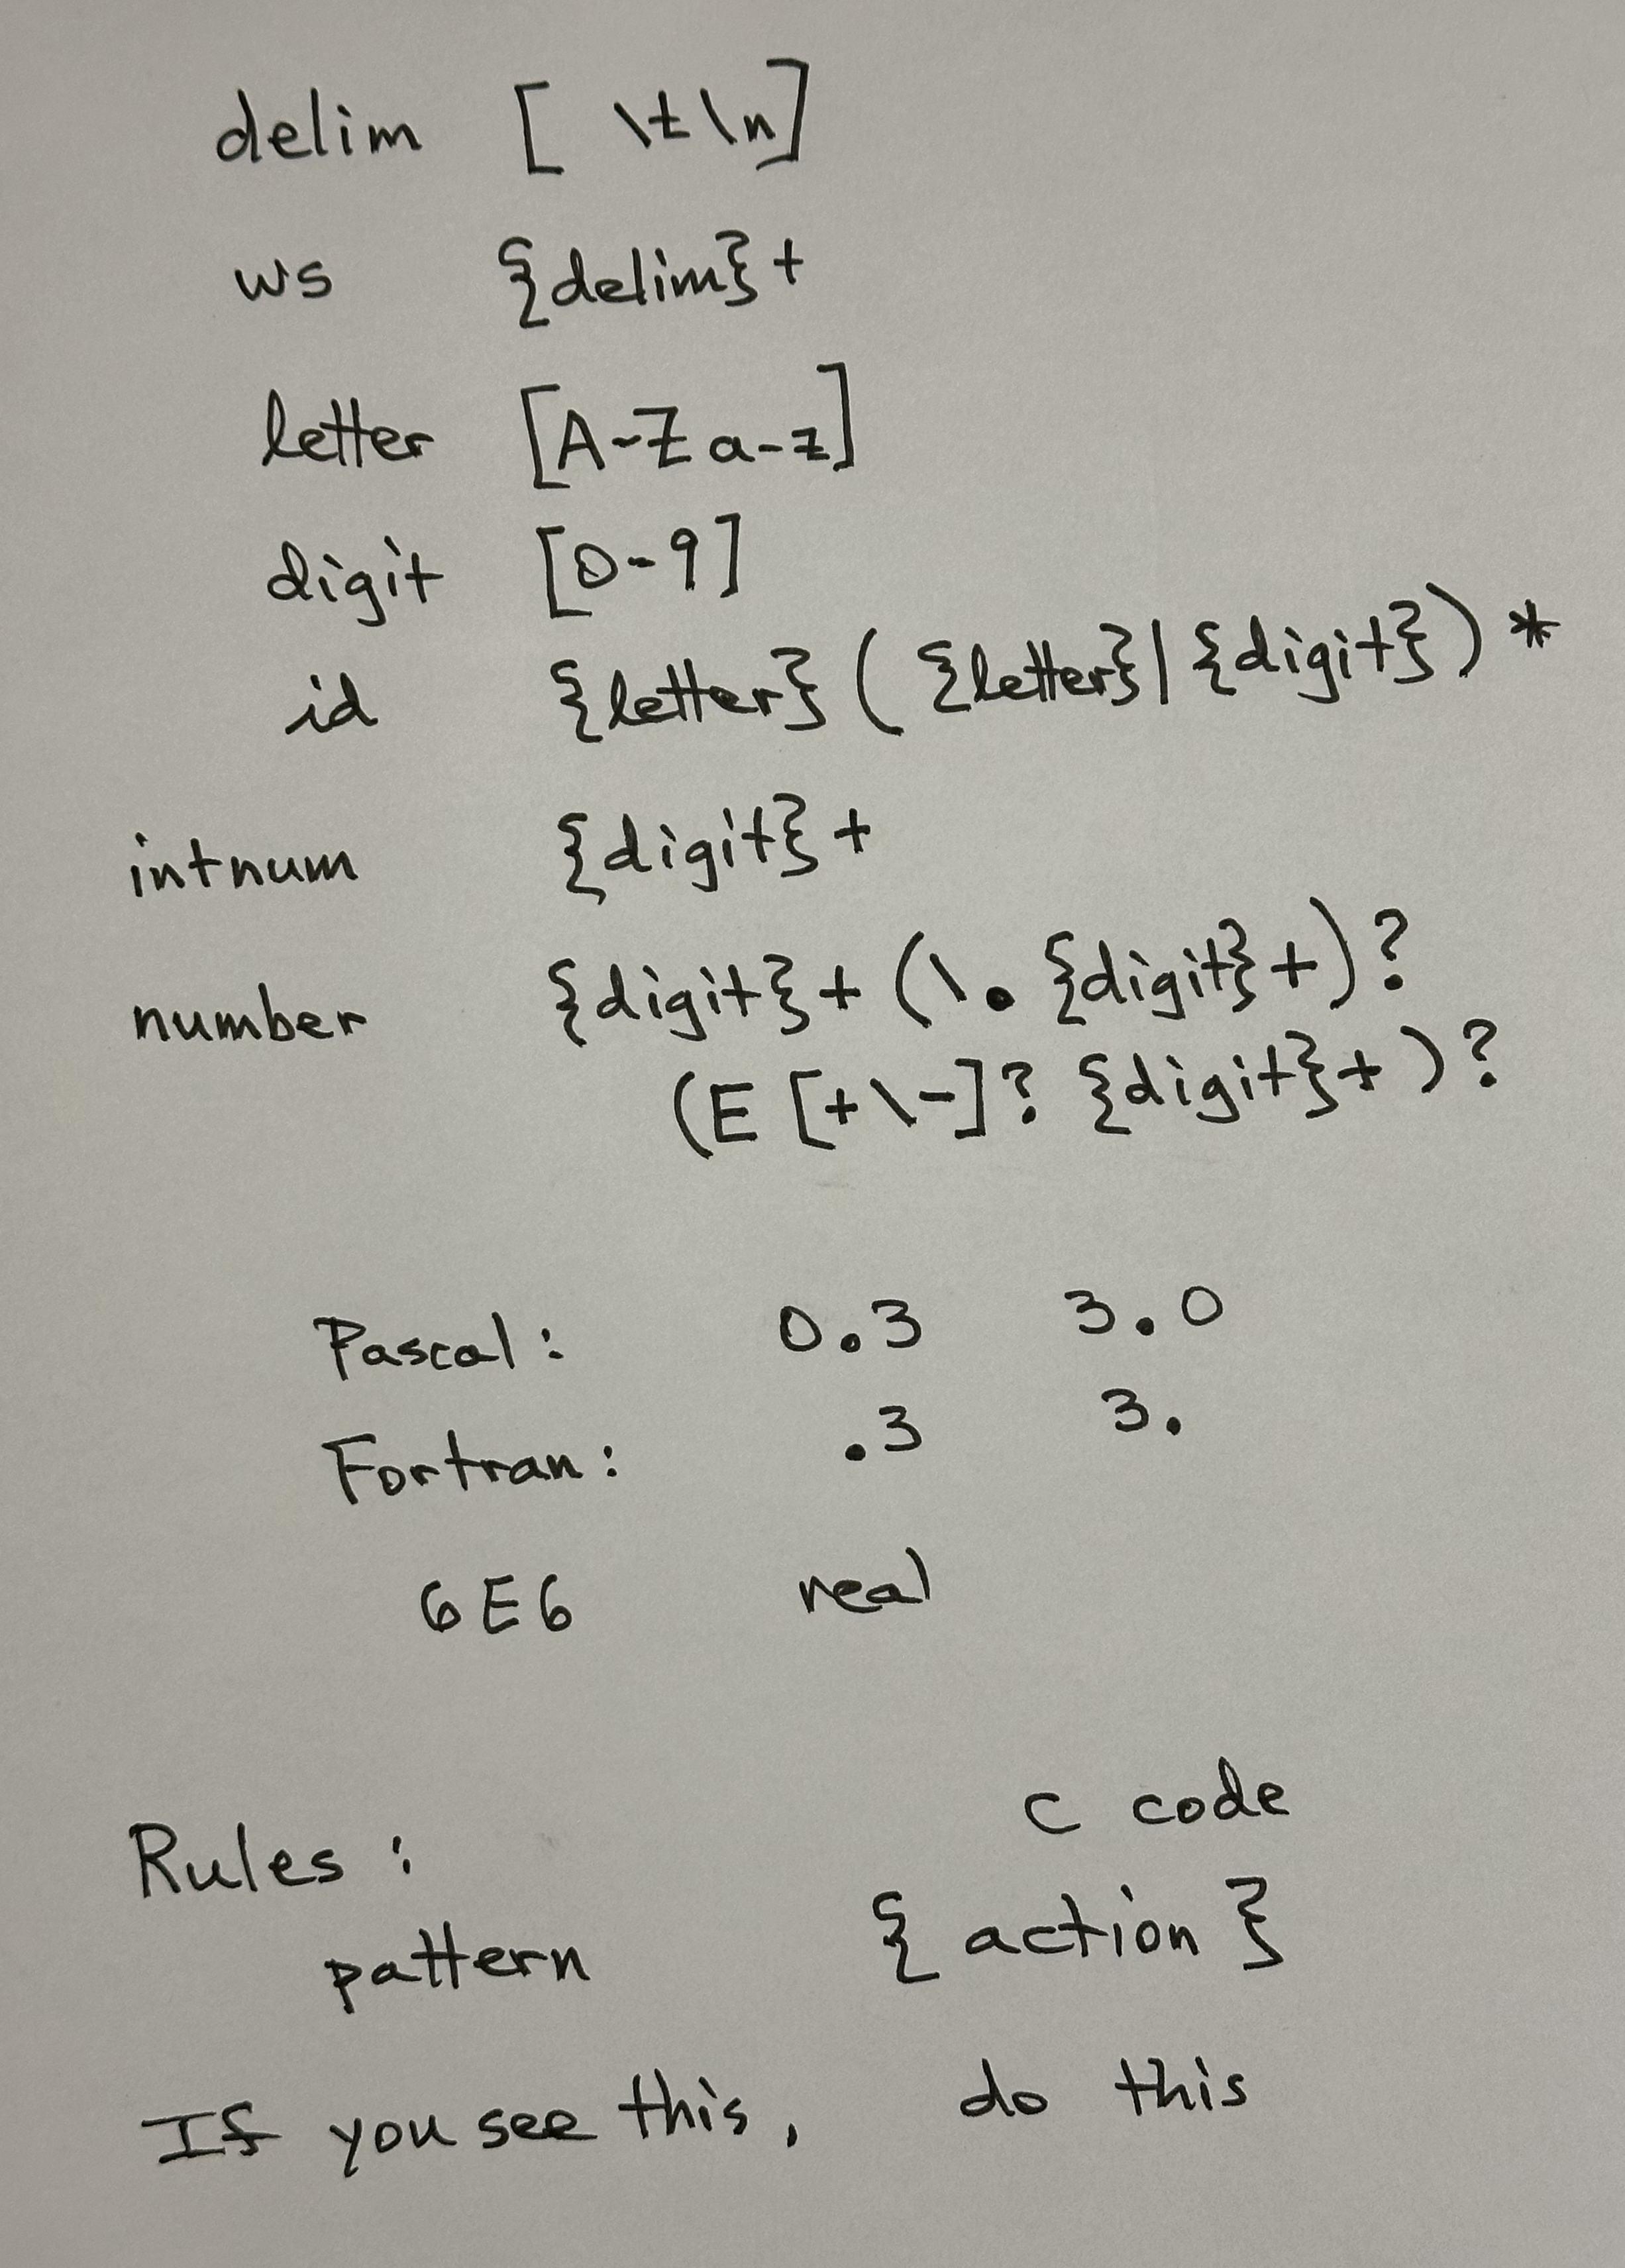 delim [ \t\n]
ws {delim}+
letter [A-Za-z]
digit [0-9]
id {letter}({letter}|{digit})*
intnum {digit}+
number {digit}+(\.{digit}+)?
(E[+\-]?{digit}+)?
Pascal: 0.3 3.0
Fortran: .3 3.
6E6 real
C code
Rules:
pattern { action }
If you see this, do this